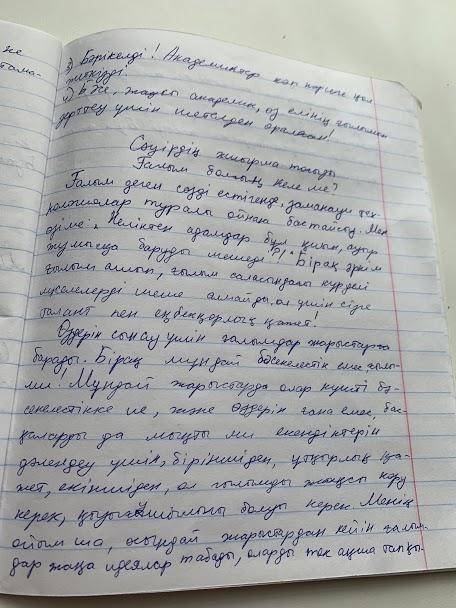 же
тама-
3) Бәрікелді! Академиктер көп нәрсеге қол
жеткізді!
4) Ия, жақсы академик, өз елінің ғылымын
дерттеу үшін шетелден оралған!
Сәуірдің жиырма тоғызы
Ғалым болғың келе ме?
Ғалым деген сөзді естігенде, заманауи тех-
нологиялар туралы ойлана бастайсың. Мен
. Неліктен адамдар бұл қиын, ауыр
жұмысқа баруды шешеді?! Бірақ әркім
ғылым ашып, ғылым саласындағы күрделі
мәселелерді шеше алмайды, ол үшін сізге
талант пен еңбекқорлық қажет!
Өздерін сынау үшін ғалымдар жарыстарға
барады. Бірақ мұндай бәсекелестік емес ғалы-
ми! Мұндай жарыстарда олар күшті бә-
секелестікке ие, және өздерін ғана емес, бас-
қаларды да мықты ми екендіктерін
дәлелдеу үшін, біріншіден, ұтқырлық қа-
жет, екіншіден, ол ғылымды жақсы көру
керек, қызығушылығы болуы керек. Менің
ойымша, осындай жарыстардан кейін ғалым-
дар жаңа идеялар табады, оларды тек ақша тапқы-